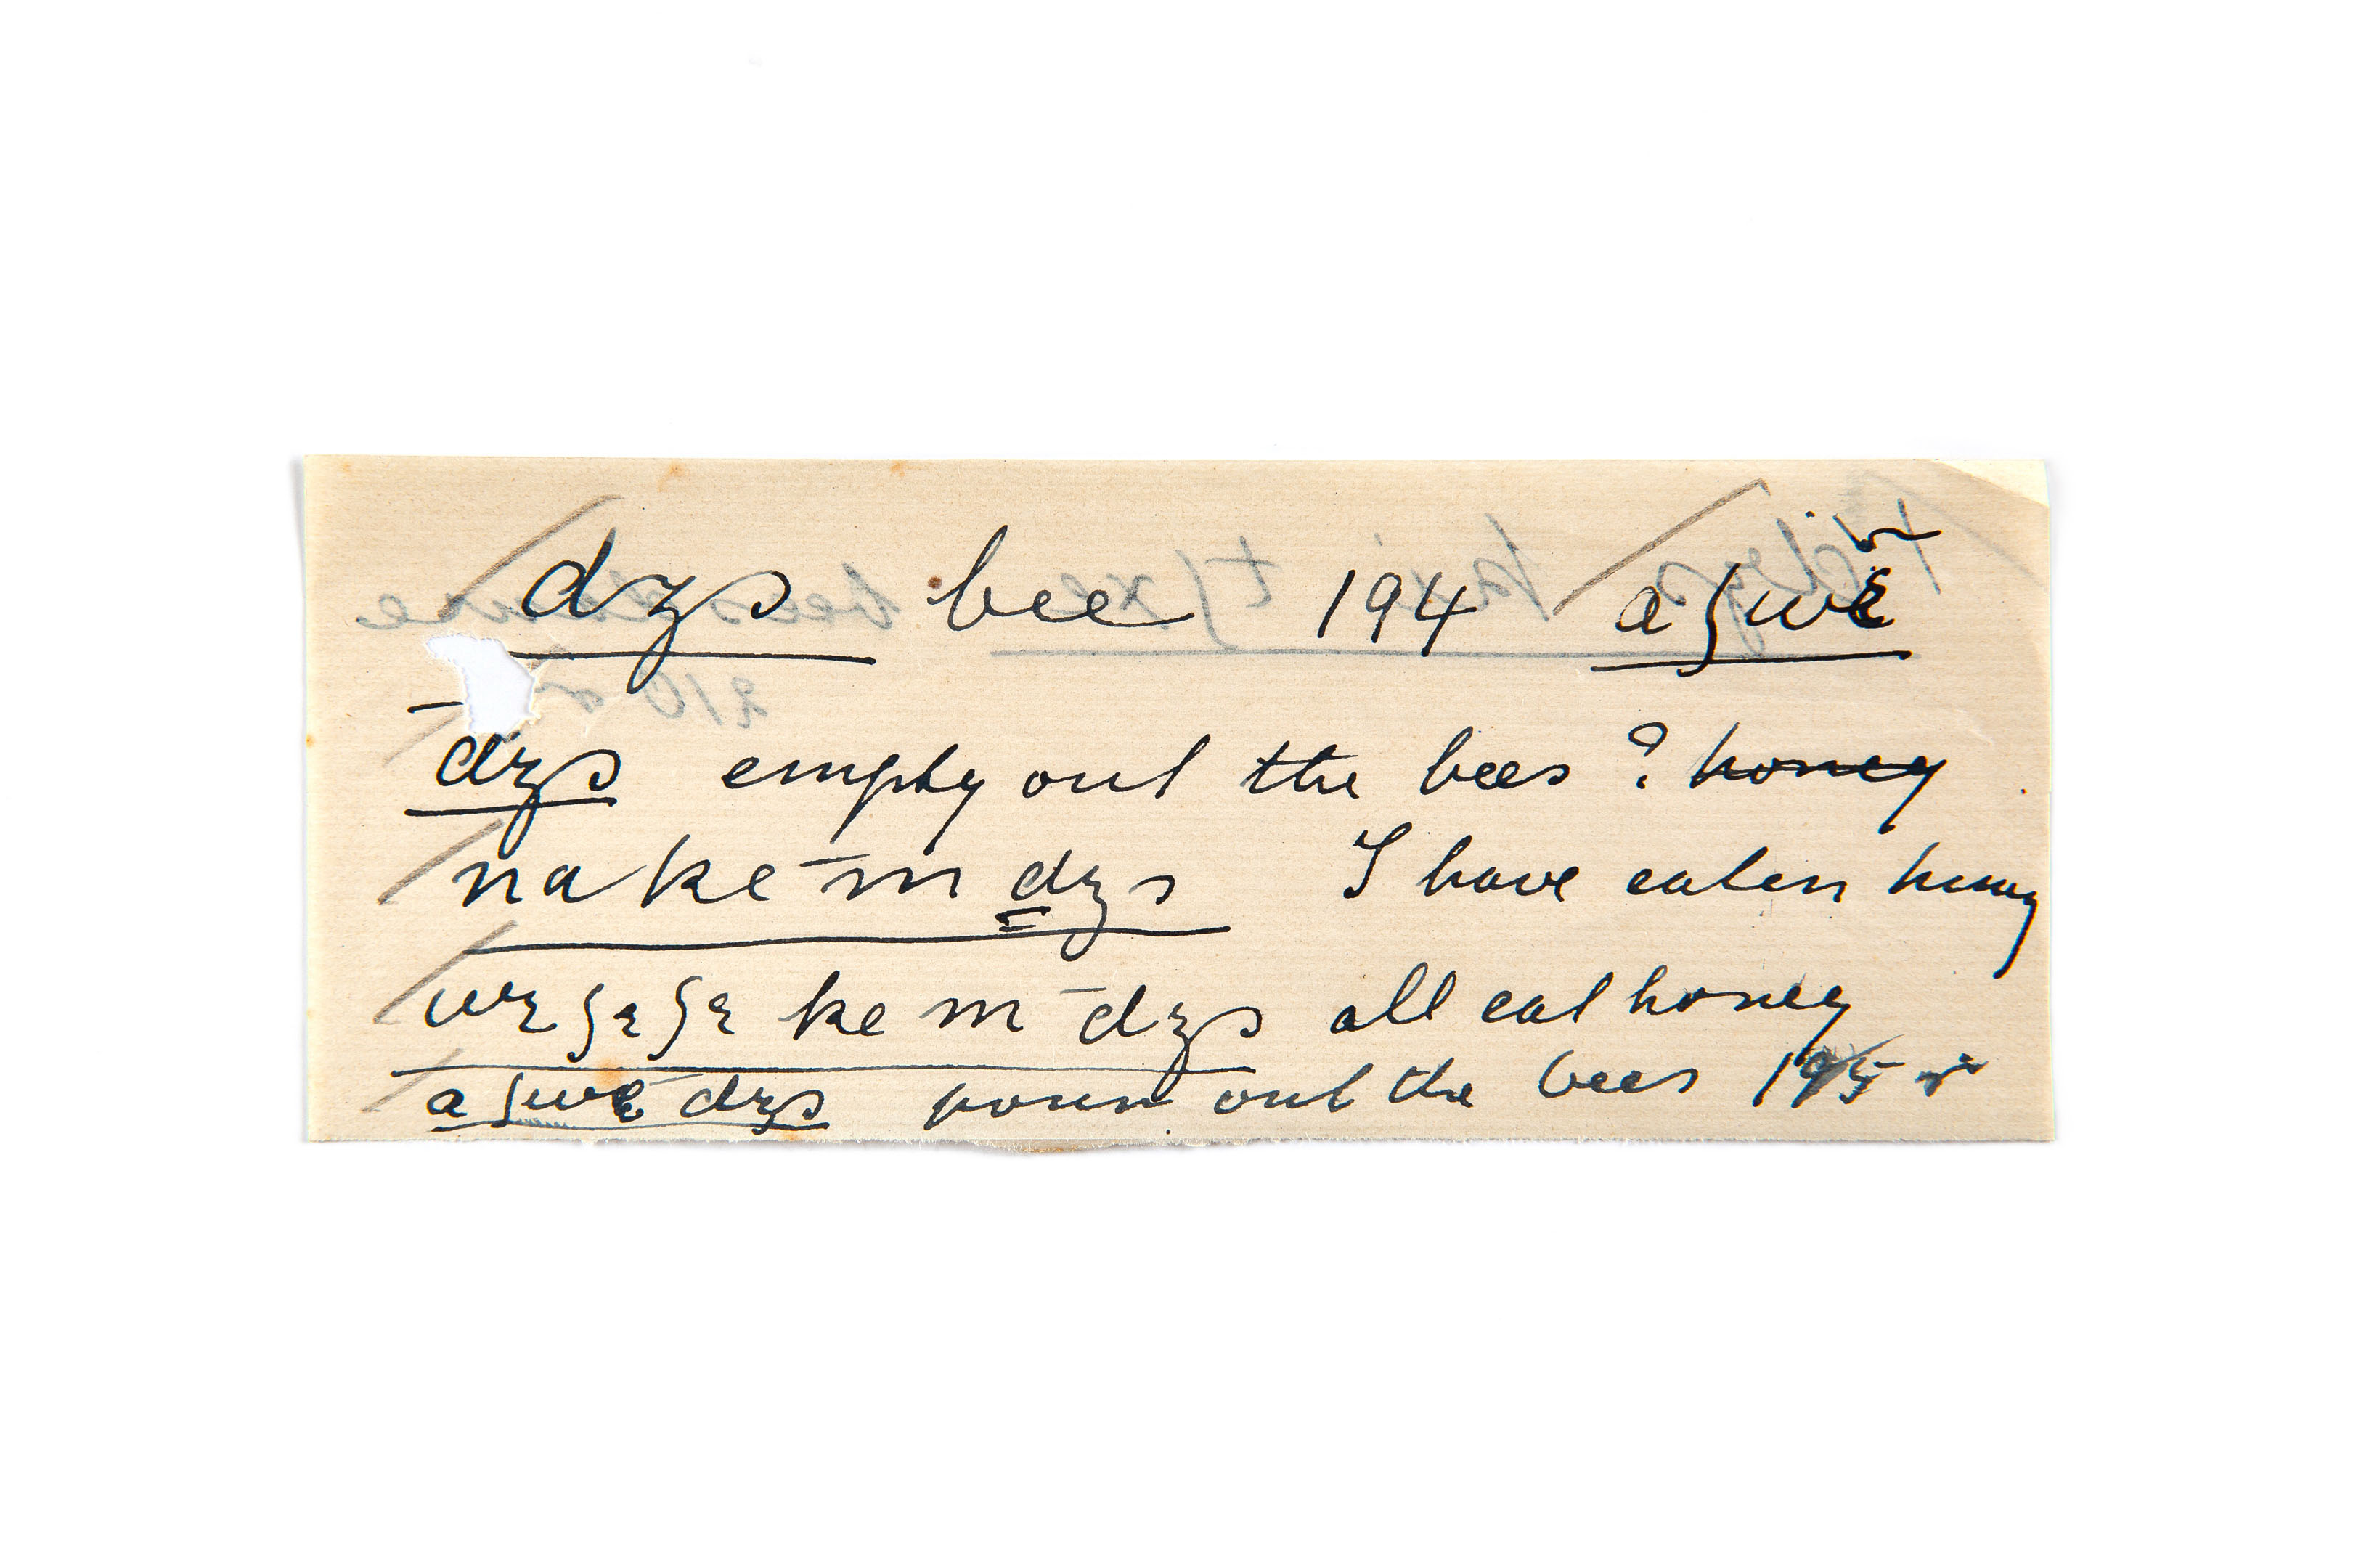 dzɔ bee 194 aʃwɛ
dzɔ empty out the bees ? honey
na ke m dzɔ I have eaten honey
wɛʃɛʃɛ ke m dzɔ all eat honey
aʃwɛ dzɔ pour out the bees 195 r